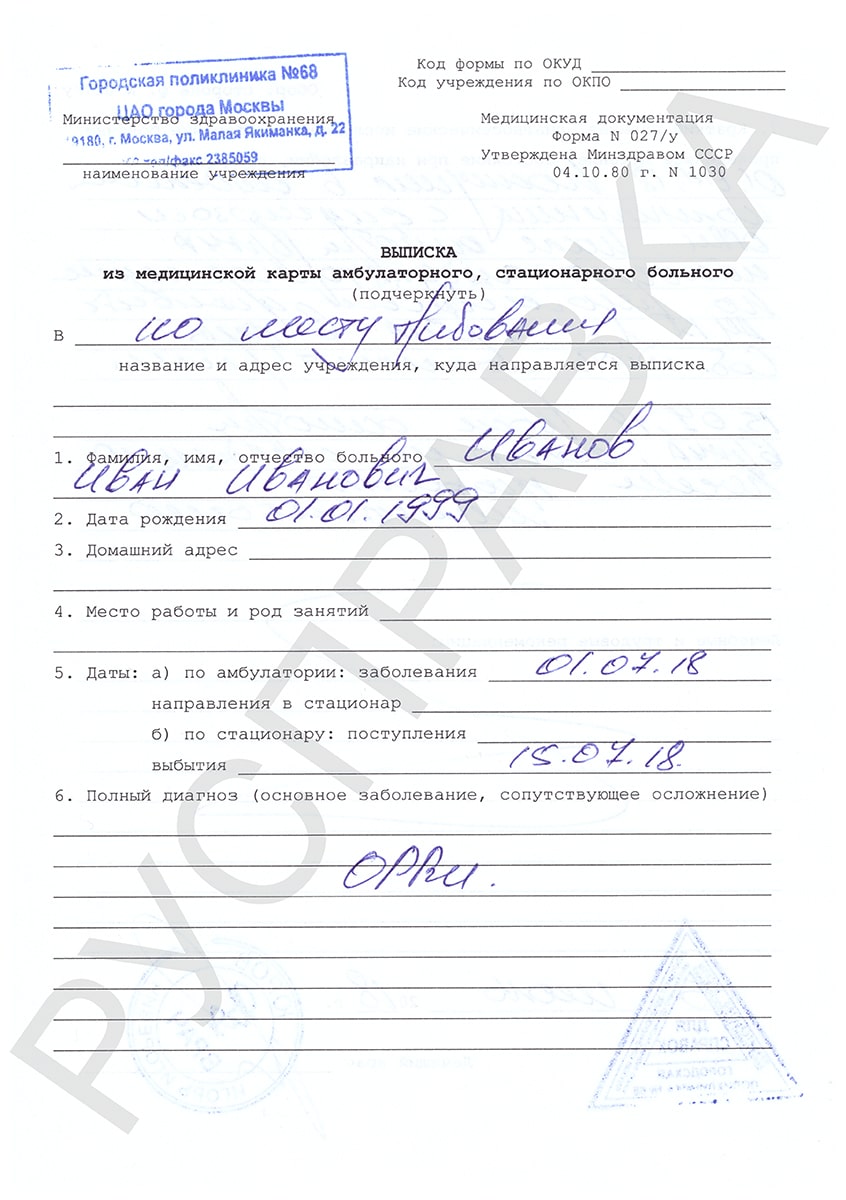 Городская поликлиника №68
ЦАО города Москвы
г. Москва, ул. Малая Якиманка, д. 22
тел/факс 2385059
Министерство здравоохранения
наименование учреждения
Код формы по ОКУД
Код учреждения по ОКПО
Медицинская документация
Форма N 027/у
Утверждена Минздравом СССР
04.10.80 г. N 1030
ВЫПИСКА
из медицинской карты амбулаторного, стационарного больного
(подчеркнуть)
В по месту требования
название и адрес учреждения, куда направляется выписка
1. Фамилия, имя, отчество больного Иванов
Иван Иванович
2. Дата рождения 01.01.1999
3. Домашний адрес
4. Место работы и род занятий
5. Даты: а) по амбулатории: заболевания 01.07.18
направления в стационар
б) по стационару: поступления
выбытия 15.07.18.
6. Полный диагноз (основное заболевание, сопутствующее осложнение)
РУСПРАВКА
ДЛЯ
СПРАВОК
ГОРОДСКАЯ